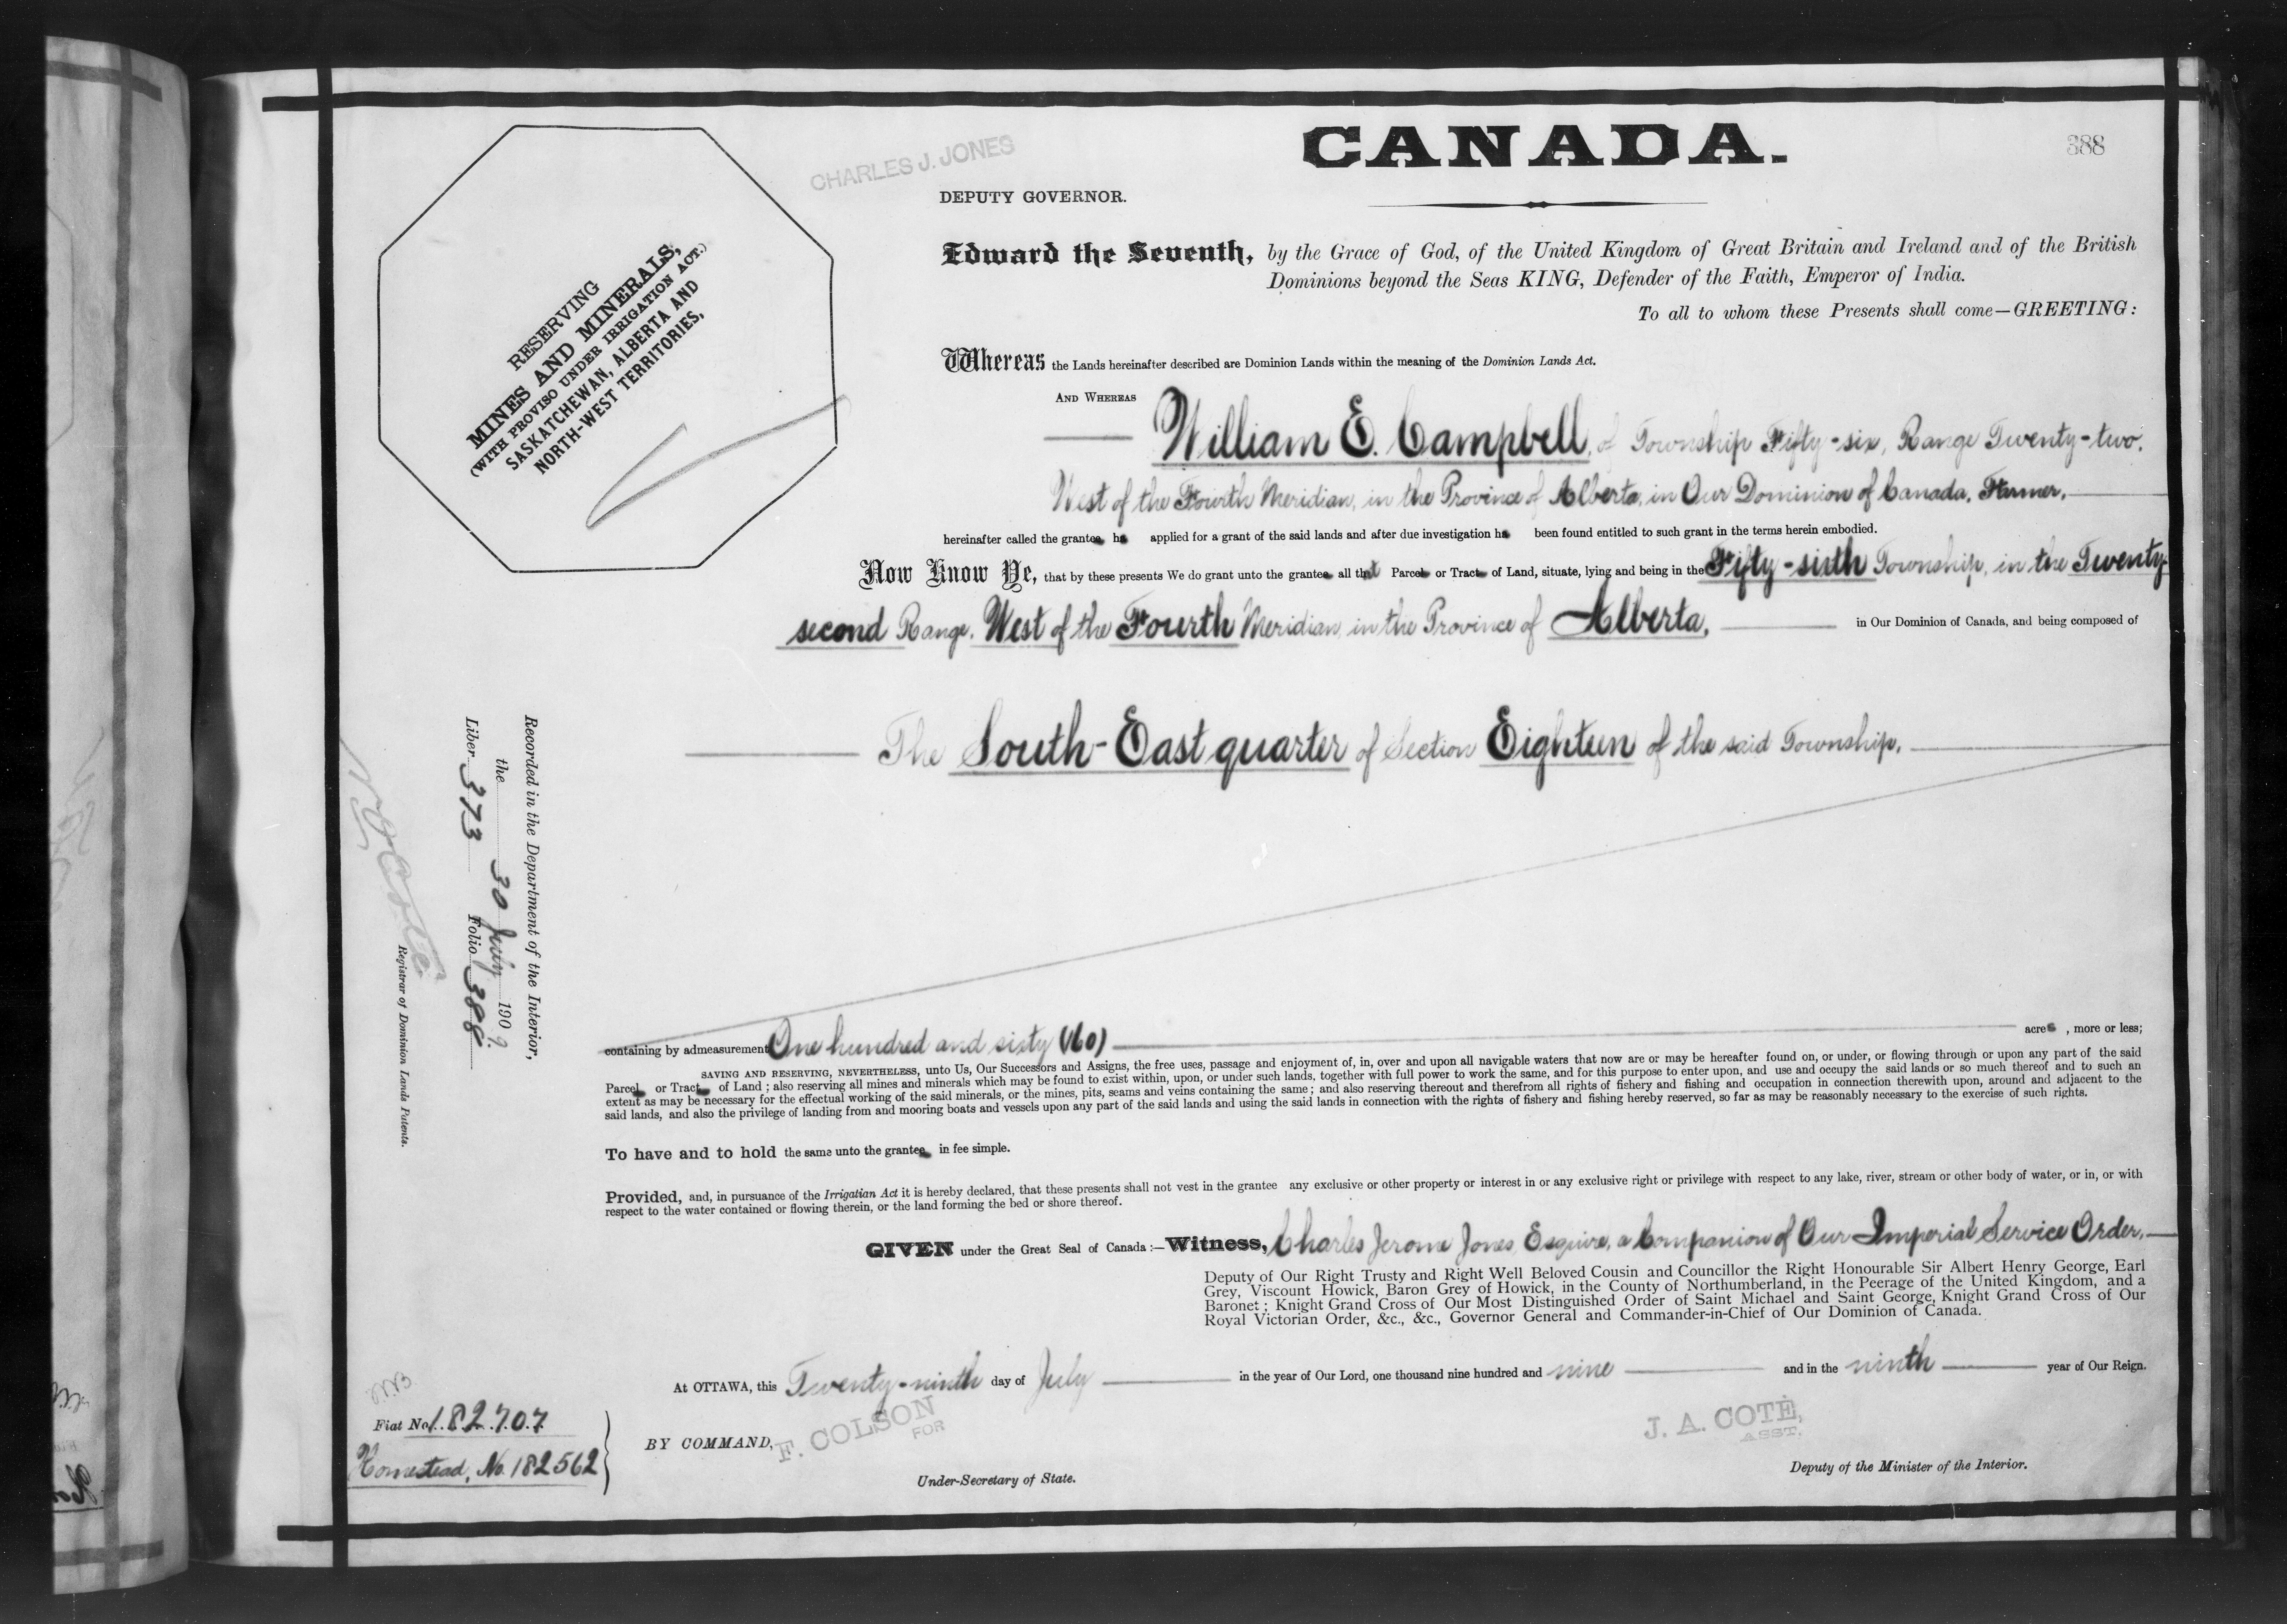 CANADA.
388
CHARLES J. JONES
DEPUTY GOVERNOR.
RESERVING
MINES AND MINERALS,
(WITH PROVISO UNDER IRRIGATION ACT.)
SASKATCHEWAN, ALBERTA AND
NORTH-WEST TERRITORIES,
Edward the Seventh, by the Grace of God, of the United Kingdom of Great Britain and Ireland and of the British
Dominions beyond the Seas KING, Defender of the Faith, Emperor of India.
To all to whom these Presents shall come—GREETING:
Whereas the Lands hereinafter described are Dominion Lands within the meaning of the Dominion Lands Act.
AND WHEREAS
William E. Campbell, of Township Fifty-six, Range Twenty-two,
West of the Fourth Meridian, in the Province of Alberta, in Our Dominion of Canada, Farmer,
hereinafter called the grantee ha applied for a grant of the said lands and after due investigation ha been found entitled to such grant in the terms herein embodied.
Now Know Ye, that by these presents We do grant unto the grantee all that Parcel or Tract of Land, situate, lying and being in the Fifty-sixth Township, in the Twenty-
second Range, West of the Fourth Meridian, in the Province of Alberta, in Our Dominion of Canada, and being composed of
The South-East quarter of Section Eighteen of the said Township,
Recorded in the Department of the Interior,
the 30 July 1909.
Liber 373 Folio 388
N O Coté
Registrar of Dominion Lands Patents.
containing by admeasurement One hundred and sixty (160) acres , more or less;
SAVING AND RESERVING, NEVERTHELESS, unto Us, Our Successors and Assigns, the free uses, passage and enjoyment of, in, over and upon all navigable waters that now are or may be hereafter found on, or under, or flowing through or upon any part of the said
Parcel or Tract of Land ; also reserving all mines and minerals which may be found to exist within, upon, or under such lands, together with full power to work the same, and for this purpose to enter upon, and use and occupy the said lands or so much thereof and to such an
extent as may be necessary for the effectual working of the said minerals, or the mines, pits, seams and veins containing the same ; and also reserving thereout and therefrom all rights of fishery and fishing and occupation in connection therewith upon, around and adjacent to the
said lands, and also the privilege of landing from and mooring boats and vessels upon any part of the said lands and using the said lands in connection with the rights of fishery and fishing hereby reserved, so far as may be reasonably necessary to the exercise of such rights.
To have and to hold the same unto the grantee in fee simple.
Provided, and, in pursuance of the Irrigatian Act it is hereby declared, that these presents shall not vest in the grantee any exclusive or other property or interest in or any exclusive right or privilege with respect to any lake, river, stream or other body of water, or in, or with
respect to the water contained or flowing therein, or the land forming the bed or shore thereof.
GIVEN under the Great Seal of Canada :—Witness, Charles Jerome Jones Esquire, a Companion of Our Imperial Service Order,
Deputy of Our Right Trusty and Right Well Beloved Cousin and Councillor the Right Honourable Sir Albert Henry George, Earl
Grey, Viscount Howick, Baron Grey of Howick, in the County of Northumberland, in the Peerage of the United Kingdom, and a
Baronet ; Knight Grand Cross of Our Most Distinguished Order of Saint Michael and Saint George, Knight Grand Cross of Our
Royal Victorian Order, &c., &c., Governor General and Commander-in-Chief of Our Dominion of Canada.
At OTTAWA, this Twenty-ninth day of July in the year of Our Lord, one thousand nine hundred and nine and in the ninth year of Our Reign.
Fiat No. 182707
Homestead, No. 182562
BY COMMAND,
F. COLSON
FOR
Under-Secretary of State.
J. A. COTE,
ASST.
Deputy of the Minister of the Interior.